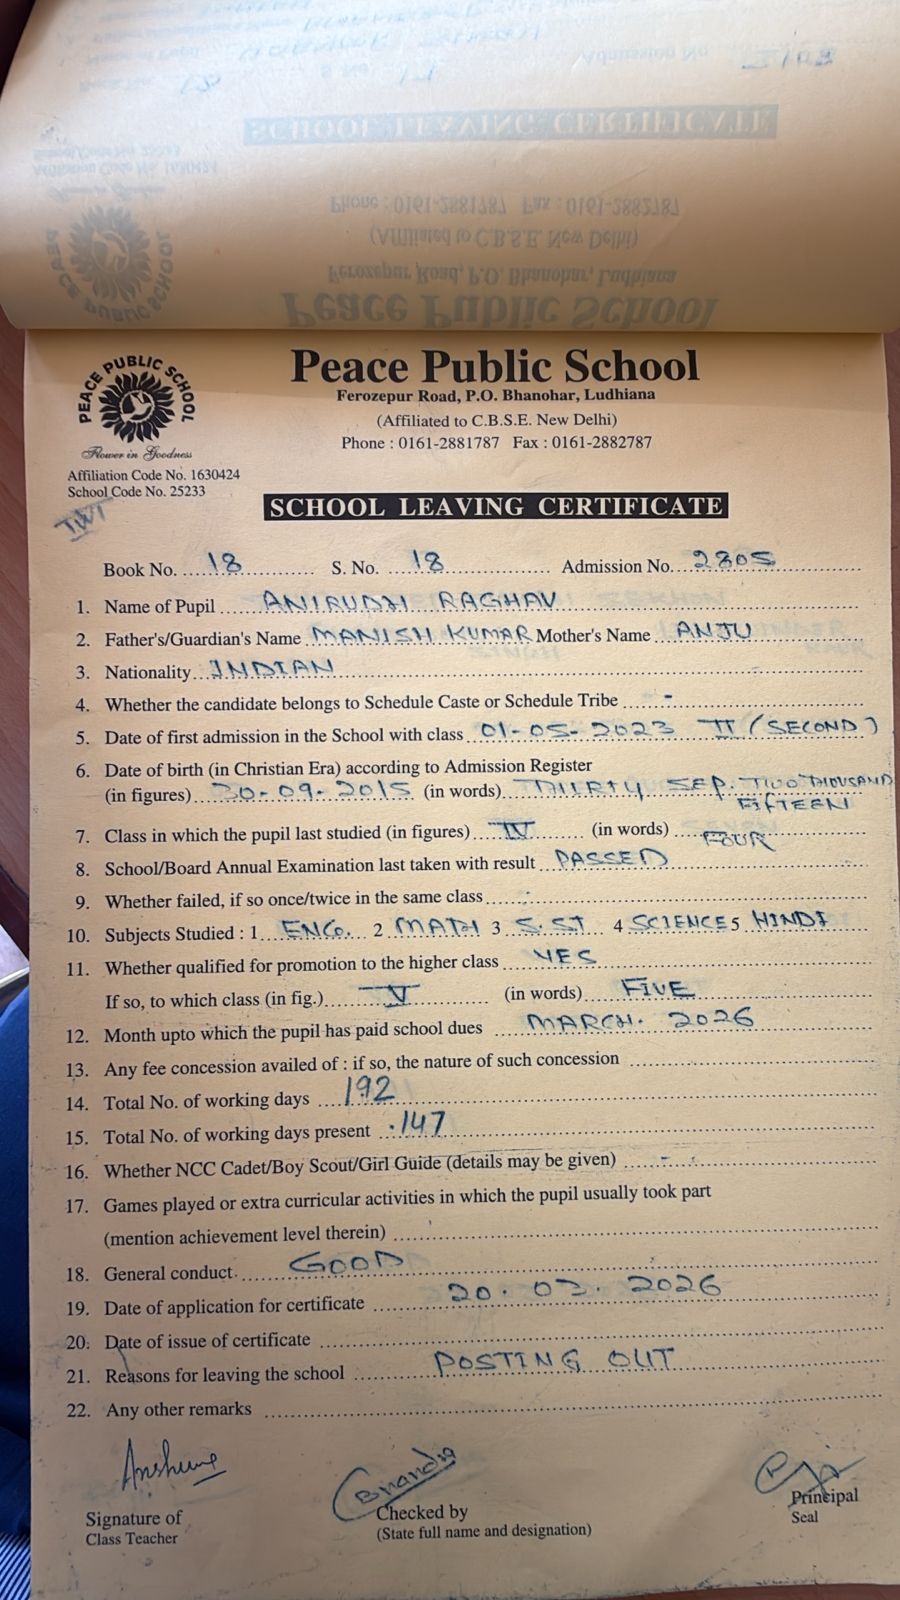 SCHOOL LEAVING CERTIFICATE
Phone : 0161-2881787 Fax : 0161-2882787
(Affiliated to C.B.S.E. New Delhi)
Ferozepur Road, P.O. Bhanohar, Ludhiana
Peace Public School
PEACE PUBLIC SCHOOL
Flower in Goodness
Affiliation Code No. 1630424
School Code No. 25233
Peace Public School
Ferozepur Road, P.O. Bhanohar, Ludhiana
(Affiliated to C.B.S.E. New Delhi)
Phone : 0161-2881787 Fax : 0161-2882787
SCHOOL LEAVING CERTIFICATE
Book No. 18 S. No. 18 Admission No. 2805
1. Name of Pupil ANIRUDH RAGHAV
2. Father's/Guardian's Name MANISH KUMAR Mother's Name ANJU
3. Nationality INDIAN
4. Whether the candidate belongs to Schedule Caste or Schedule Tribe -
5. Date of first admission in the School with class 01-05-2023 II (SECOND)
6. Date of birth (in Christian Era) according to Admission Register
(in figures) 30-09-2015 (in words) THIRTY SEP. TWO THOUSAND
FIFTEEN
7. Class in which the pupil last studied (in figures) IV (in words) FOUR
8. School/Board Annual Examination last taken with result PASSED
9. Whether failed, if so once/twice in the same class
10. Subjects Studied : 1 ENG. 2 MATH 3 S.ST 4 SCIENCE 5 HINDI
11. Whether qualified for promotion to the higher class YES
If so, to which class (in fig.) V (in words) FIVE
12. Month upto which the pupil has paid school dues MARCH. 2026
13. Any fee concession availed of : if so, the nature of such concession
14. Total No. of working days 192
15. Total No. of working days present 147
16. Whether NCC Cadet/Boy Scout/Girl Guide (details may be given) -
17. Games played or extra curricular activities in which the pupil usually took part
(mention achievement level therein)
18. General conduct GOOD
19. Date of application for certificate 20. 03. 2026
20. Date of issue of certificate
21. Reasons for leaving the school POSTING OUT
22. Any other remarks
Signature of
Class Teacher
Checked by
(State full name and designation)
Principal
Seal